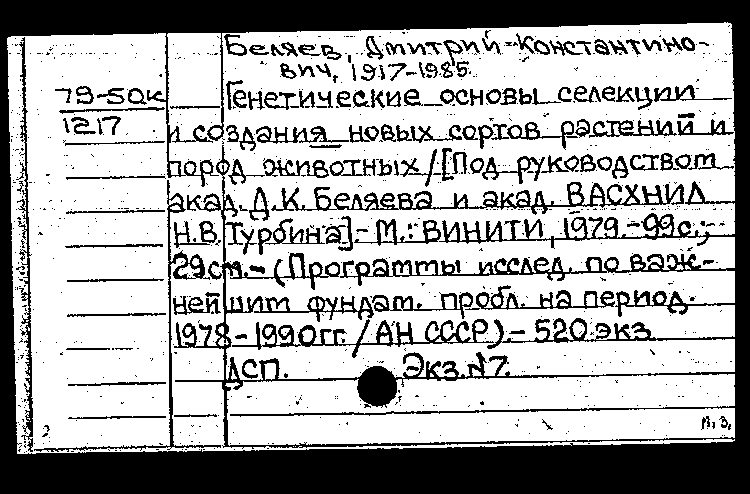 Беляев, Дмитрий Константино-
вич, 1917-1985.
79-50к
1217
Генетические основы селекции
и создания новых сортов растений и
пород животных / [Под руководством
акад. Д.К. Беляева и акад. ВАСХНИЛ
Н.В. Турбина]. - М.: ВИНИТИ, 1979. - 99с.;
29см. - (Программы исслед. по важ-
нейшим фундам. пробл. на период.
1978-1990гг. / АН СССР). - 520 экз.
ДСП. Экз. №7.